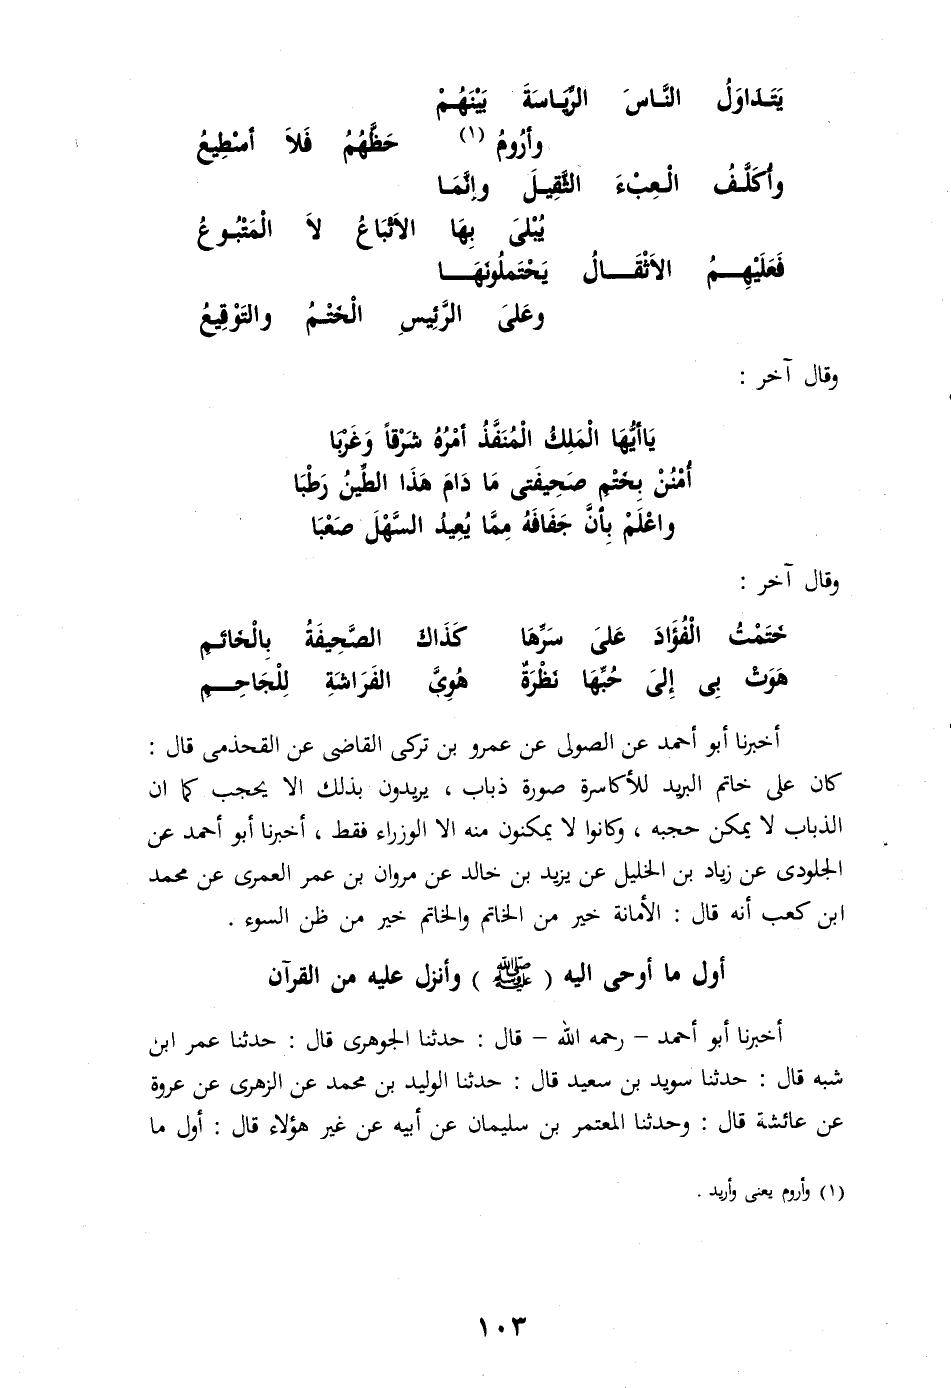 يَتَدَاوَلُ النَّاسَ الرِّيَاسَةَ بَيْنَهُمْ
وأرُومُ (١) حَظَّهُمُ فَلاَ أسْطِيعُ
وأُكَلَّفُ الْعِبْءَ الثَّقِيلَ وإنَّمَا
يُبْلىَ بِهَا الاَتْبَاعُ لاَ الْمَتْبُوعُ
فَعَلَيْهِمُ الاَثْقَالُ يَحْتَملُونَهَا
وعَلىَ الرَّئِيسِ الْخَتْمُ والتَوْقِيعُ
وقال آخر :
يَاأيُّهَا الْمَلِكُ الْمُنَفَّذُ أمْرُهُ شَرْقاً وَغَرْبَا
أُمْنُنْ بِخَتْمِ صَحِيفَتى مَا دَامَ هَذَا الطِّينُ رَطْبَا
واعْلَمْ بِأنَّ جَفَافَهُ مِمَّا يُعِيدُ السَّهْلَ صَعْبَا
وقال آخر :
خَتَمْتُ الْفُؤَادَ عَلىَ سَرِّهَا كَذَاكَ الصَّحِيفَةُ بِالْخَاتَمِ
هَوَتْ بِى إِلىَ حُبِّهَا نَظْرَةٌ هُوِيَّ الفَرَاشَةِ لِلْجَاحِمِ
أخبرنا أبو أحمد عن الصولى عن عمرو بن تركى القاضى عن القحذمى قال :
كان على خاتم البريد للأكاسرة صورة ذباب ، يريدون بذلك الا يحجب كما ان
الذباب لا يمكن حجبه ، وكانوا لا يمكنون منه الا الوزراء فقط ، أخبرنا أبو أحمد عن
الجلودى عن زياد بن الخليل عن يزيد بن خالد عن مروان بن عمر العمرى عن محمد
ابن كعب أنه قال : الأمانة خير من الخاتم والخاتم خير من ظن السوء .
أول ما أوحى اليه ( ﷺ ) وأنزل عليه من القرآن
أخبرنا أبو أحمد – رحمه الله – قال : حدثنا الجوهرى قال : حدثنا عمر ابن
شبه قال : حدثنا سويد بن سعيد قال : حدثنا الوليد بن محمد عن الزهرى عن عروة
عن عائشة قال : وحدثنا المعتمر بن سليمان عن أبيه عن غير هؤلاء قال : أول ما
(١) وأروم يعنى وأريد .
١٠٣